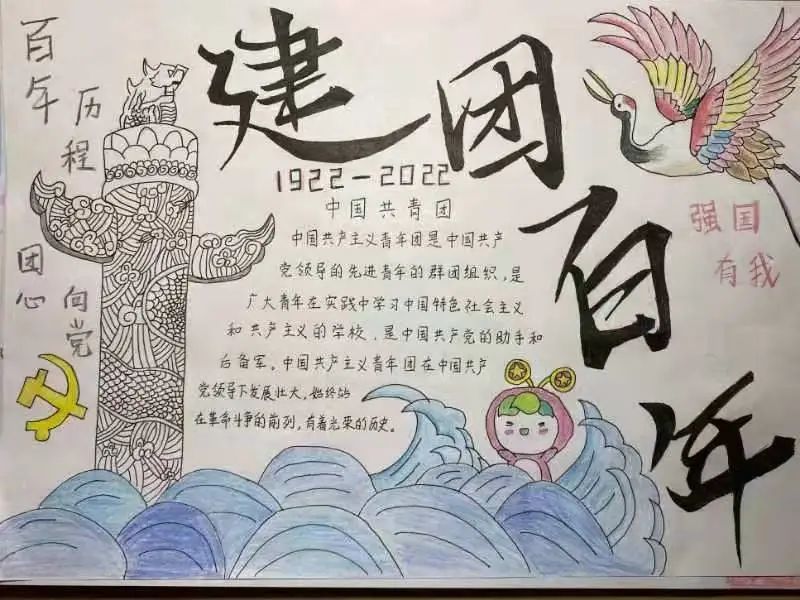 建团百年
百年
历程
团心
向党
1922-2022
中国共青团
中国共产主义青年团是中国共产
党领导的先进青年的群团组织,是
广大青年在实践中学习中国特色社会主义
和共产主义的学校,是中国共产党的助手和
后备军。中国共产主义青年团在中国共产
党领导下发展壮大,始终站
在革命斗争的前列,有着光荣的历史。
强国
有我